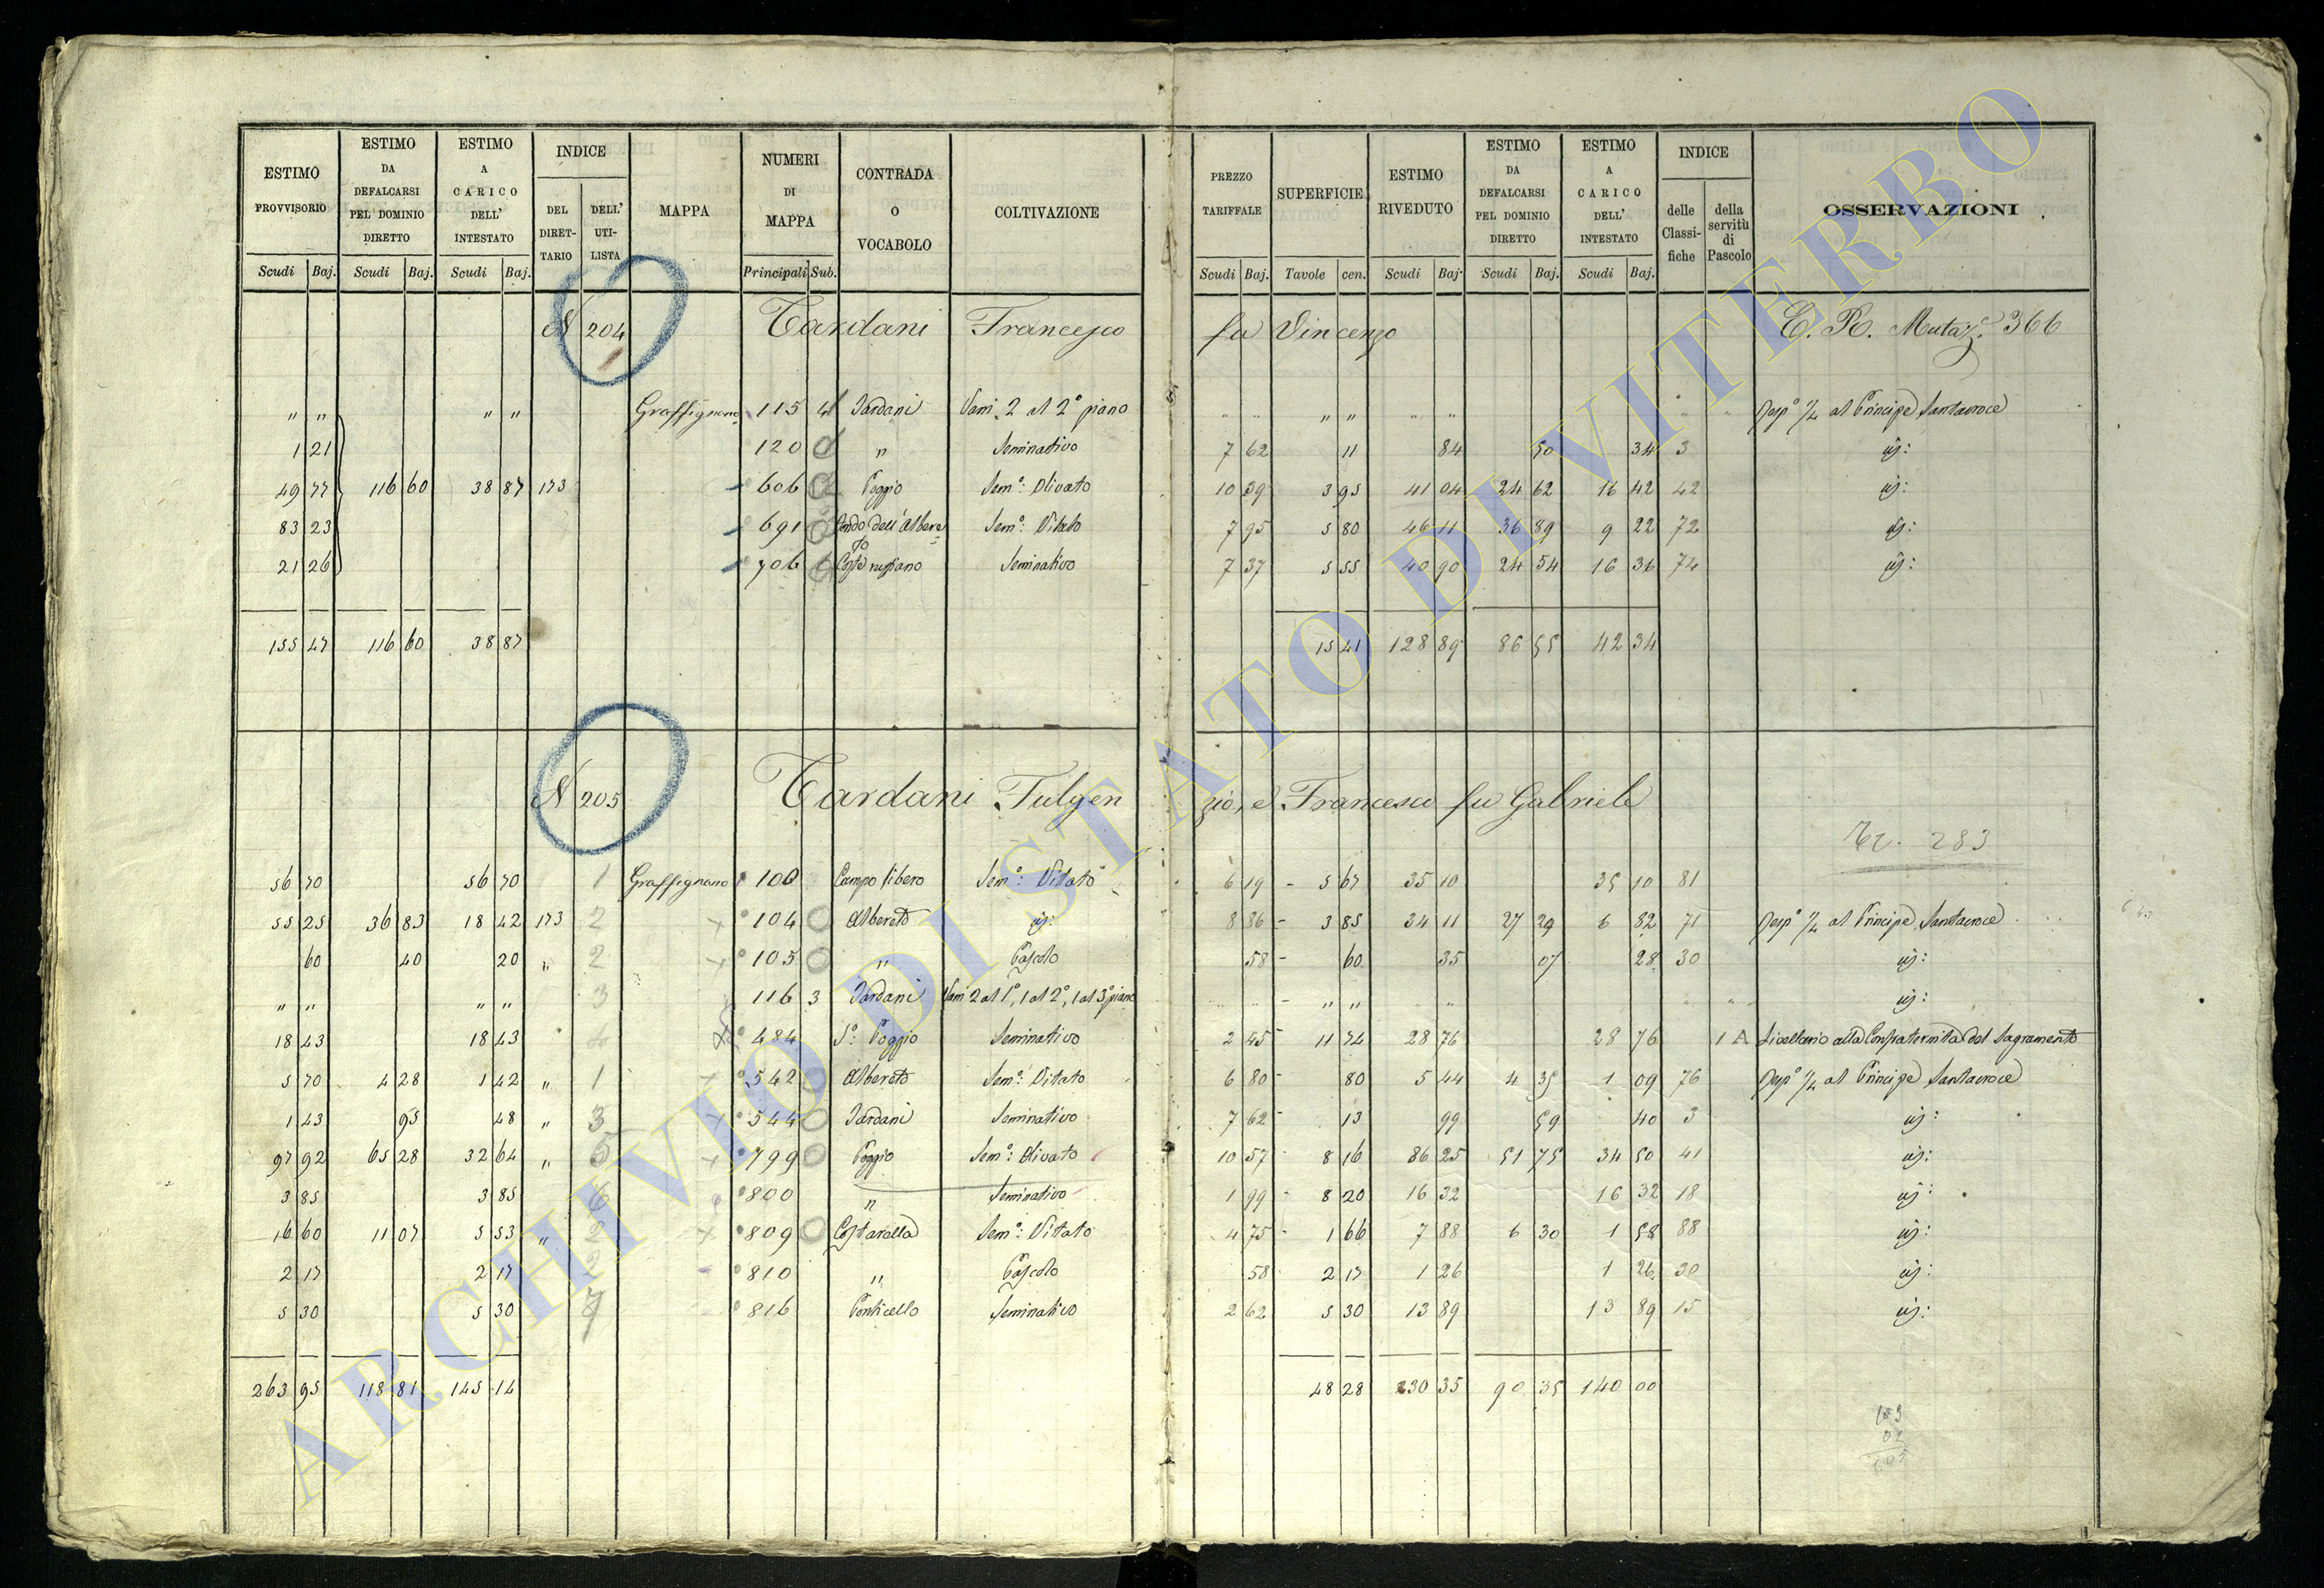 ESTIMO PROVVISORIO | ESTIMO DA DEFALCARSI PEL DOMINIO DIRETTO | ESTIMO A CARICO DELL' INTESTATO | INDICE DEL DIRETTARIO | DELL' UTILISTA | MAPPA | NUMERI DI MAPPA | CONTRADA O VOCABOLO | COLTIVAZIONE | PREZZO TARIFFALE | SUPERFICIE | ESTIMO RIVEDUTO | ESTIMO DA DEFALCARSI PEL DOMINIO DIRETTO | ESTIMO A CARICO DELL' INTESTATO | INDICE delle Classifiche | della servitù di Pascolo | OSSERVAZIONI
Scudi Baj. Scudi Baj. Scudi Baj. Principali Sub. Scudi Baj. Tavole cen. Scudi Baj. Scudi Baj. Scudi Baj.
N 204 Tardani Francesco fu Vincenzo C. R. Mutaz. 366
" " " " Graffignano 115 4 Tardani Vani 2 al 2° piano " " " " " " " " Risp° ¼ al Principe Santacroce
1 21 120 " Seminativo 7 62 11 84 50 34 3 id:
49 77 116 60 38 87 173 606 Poggio Sem°: Olivato 10 39 3 95 41 04 24 62 16 42 42 id:
83 23 691 Fondo dell'Albereto Sem°: Vitato 7 95 5 80 46 11 36 89 9 22 72 id:
21 26 706 Seminativo 7 37 5 55 40 90 24 54 16 36 74 id:
155 47 116 60 38 87 15 41 128 89 86 55 42 34
N 205 Tardani Fulgenzio, e Francesco fu Gabriele
283
56 70 56 70 1 Graffignano 100 Campo libero Sem°: Vitato 6 19 5 67 35 10 35 10 81
55 25 36 83 18 42 173 2 104 Albereto id: 8 86 3 85 34 11 27 29 6 82 71 Risp° ¼ al Principe Santacroce
60 40 20 " 2 105 " Pascolo 58 60 35 07 28 30 id:
" " " " 3 116 3 Tardani Vani 2 al 1°, 1 al 2°, 1 al 3° piano " " " " id:
18 43 18 43 4 484 S°: Poggio Seminativo 2 45 11 74 28 76 28 76 1 A Livellario alla Confraternita del Sagramento
5 70 4 28 1 42 " 1 542 Albereto Sem°: Vitato 6 80 80 5 44 4 35 1 09 76 Risp° ¼ al Principe Santacroce
1 43 95 48 " 3 544 Tardani Seminativo 7 62 13 99 59 40 3 id:
97 92 65 28 32 64 " 5 799 Poggio Sem°: Olivato 10 57 8 16 86 25 51 75 34 50 41 id:
3 85 3 85 6 800 " Seminativo 1 99 8 20 16 32 16 32 18 id:
16 60 11 07 5 53 " 2 809 Costarella Sem°: Vitato 4 75 1 66 7 88 6 30 1 58 88 id:
2 17 2 17 2 810 " Pascolo 58 2 17 1 26 1 26 30 id:
5 30 5 30 7 816 Ponticello Seminativo 2 62 5 30 13 89 13 89 15 id:
263 95 118 81 145 14 48 28 230 35 90 35 140 00
ARCHIVIO DI STATO DI VITERBO